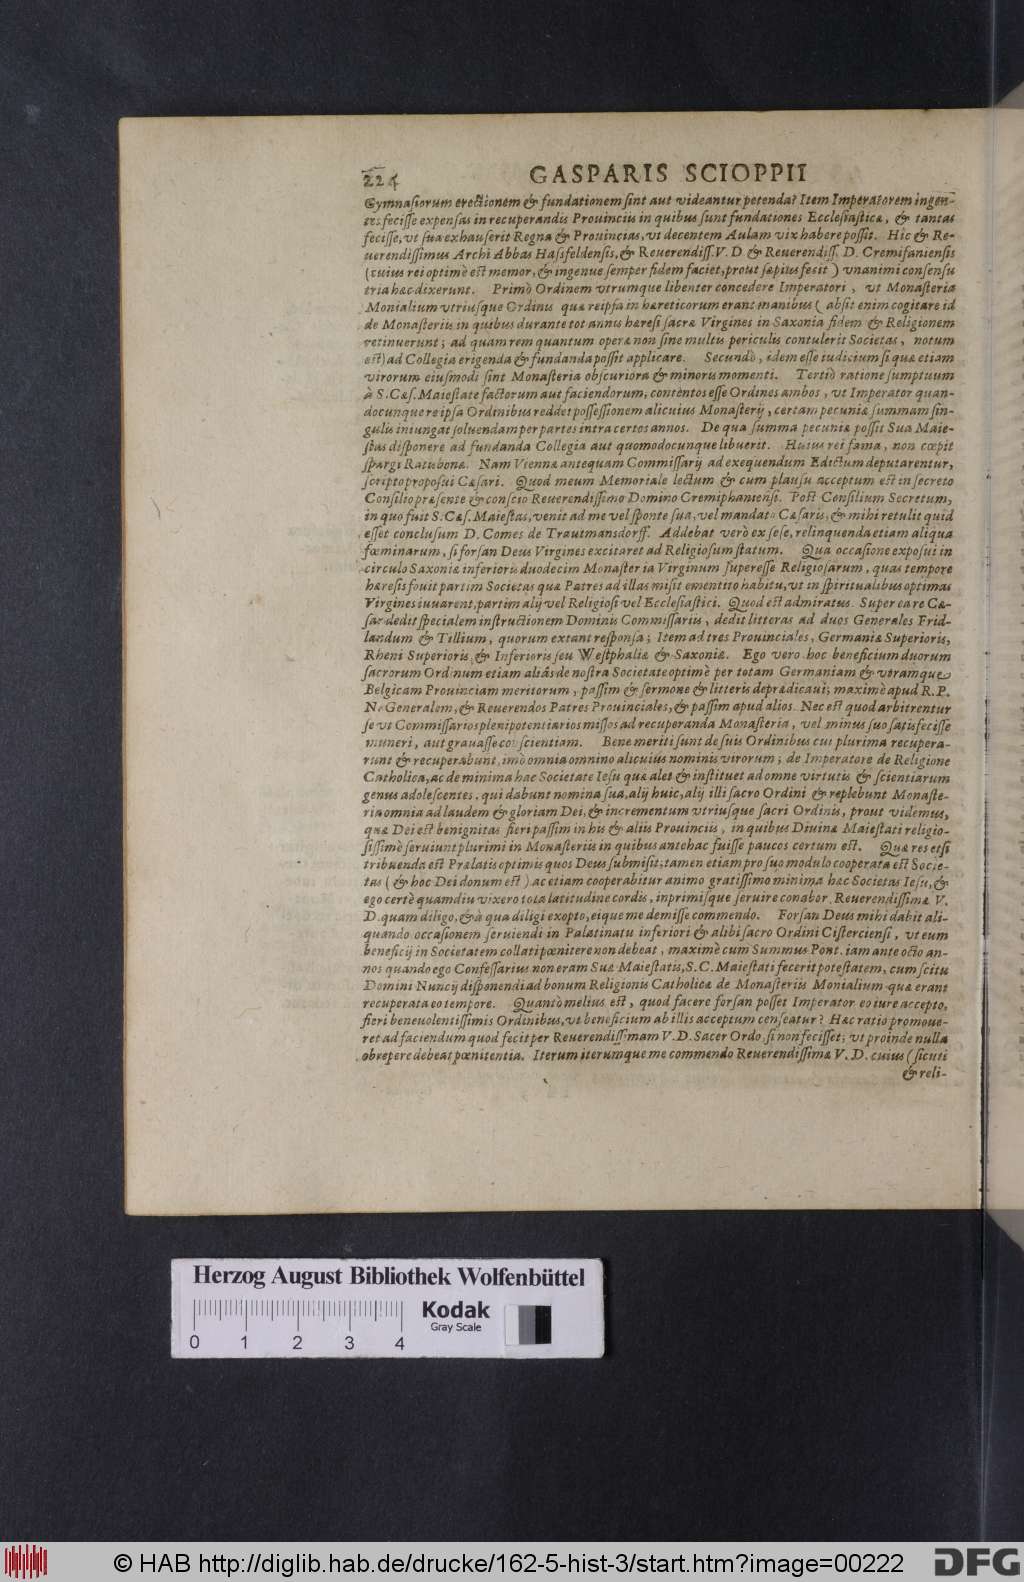 224 GASPARIS SCIOPPII
Gymnaſiorum erectionem & fundationem ſint aut videantur petenda? Item Imperatorem ingen-
tes feciſſe expenſas in recuperandis Prouinciis in quibus ſunt fundationes Eccleſiaſticæ, & tantas
feciſſe, vt ſua exhauſerit Regna & Prouincias, vt decentem Aulam vix habere poſſit. Hic & Re-
uerendiſſimus Archi Abbas Haſsfeldenſis, & Reuerendiſſ. V. D & Reuerendiſſ. D. Cremifanienſis
(cuius rei optimè eſt memor, & ingenue ſemper fidem faciet, prout ſæpius fecit) vnanimi conſenſu
tria hæc dixerunt. Primò Ordinem vtrumque libenter concedere Imperatori, vt Monaſteria
Monialium vtriuſque Ordinis quæ reipſa in hæreticorum erant manibus (abſit enim cogitare id
de Monaſteriis in quibus durante tot annis hæreſi ſacræ Virgines in Saxonia fidem & Religionem
retinuerunt; ad quam rem quantum operæ non ſine multis periculis contulerit Societas, notum
eſt) ad Collegia erigenda & fundanda poſſit applicare. Secundò, idem eſſe iudicium ſi quæ etiam
virorum eiuſmodi ſint Monaſteria obſcuriora & minoris momenti. Tertiò ratione ſumptuum
à S. Cæſ. Maieſtate factorum aut faciendorum, contentos eſſe Ordines ambos, vt Imperator quan-
documque re ipſa Ordinibus reddet poſſeſſionem alicuius Monaſterij, certam pecuniæ ſummam ſin-
gulis iniungat ſoluendam per partes intra certos annos. De qua ſumma pecuniæ poſſit Sua Maie-
ſtas diſponere ad fundanda Collegia aut quomodocunque libuerit. Huius rei fama, non cœpit
ſpargi Ratisbonæ. Nam Viennæ antequam Commiſſarij ad exequendum Edictum deputarentur,
ſcripto propoſui Cæſari. Quod meum Memoriale lectum & cum plauſu acceptum eſt in ſecreto
Conſilio præſente & conſcio Reuerendiſſimo Domino Cremiphanienſi. Poſt Conſilium Secretum,
in quo fuit S. Cæſ. Maieſtas, venit ad me vel ſponte ſua, vel mandato Cæſaris, & mihi retulit quid
eſſet concluſum D. Comes de Trautmansdorff. Addebat verò ex ſeſe, relinquenda etiam aliqua
fœminarum, ſi forſan Deus Virgines excitaret ad Religioſum ſtatum. Qua occaſione expoſui in
circulo Saxoniæ inferioris duodecim Monaſteria Virginum ſupereſſe Religioſarum, quas tempore
hæreſis fouit partim Societas quæ Patres ad illas miſit ementito habitu, vt in ſpiritualibus optimas
Virgines iuuarent, partim alij vel Religioſi vel Eccleſiaſtici. Quod eſt admiratus. Super ea re Cæ-
ſar dedit ſpecialem inſtructionem Dominis Commiſſariis, dedit litteras ad duos Generales Frid-
landum & Tillium, quorum extant reſponſa; Item ad tres Prouinciales, Germaniæ Superioris,
Rheni Superioris, & Inferioris ſeu Weſtphaliæ & Saxoniæ. Ego vero hoc beneficium duorum
ſacrorum Ordinum etiam aliàs de noſtra Societate optimè per totam Germaniam & vtramque
Belgicam Prouinciam meritorum, paſſim & ſermone & litteris deprædicaui; maximè apud R. P.
N. Generalem, & Reuerendos Patres Prouinciales, & paſſim apud alios. Nec eſt quod arbitrentur
ſe vt Commiſſarios plenipotentiarios miſſos ad recuperanda Monaſteria, vel minus ſuo ſatisfeciſſe
muneri, aut grauaſſe conſcientiam. Bene meriti ſunt de ſuis Ordinibus cui plurima recupera-
runt & recuperabunt, imò omnia omnino alicuius nominis virorum; de Imperatore de Religione
Catholica, ac de minima hac Societate Ieſu quæ alet & inſtituet ad omne virtutis & ſcientiarum
genus adoleſcentes, qui dabunt nomina ſua, alij huic, alij illi ſacro Ordini & replebunt Monaſte-
ria omnia ad laudem & gloriam Dei, & incrementum vtriuſque ſacri Ordinis, prout videmus,
quæ Dei eſt benignitas fieri paſſim in his & aliis Prouinciis, in quibus Diuinæ Maieſtati religio-
ſiſſimè ſeruiunt plurimi in Monaſteriis in quibus antehac fuiſſe paucos certum eſt. Quæ res etſi
tribuenda eſt Prælatis optimis quos Deus ſubmiſit; tamen etiam pro ſuo modulo cooperata eſt Socie-
tas (& hoc Dei donum eſt) ac etiam cooperabitur animo gratiſſimo minima hæc Societas Ieſu, &
ego certè quamdiu vixero tota latitudine cordis, inprimiſque ſeruire conabor Reuerendiſſimæ V.
D. quam diligo, & à qua diligi exopto, eique me demiſſe commendo. Forſan Deus mihi dabit ali-
quando occaſionem ſeruiendi in Palatinatu inferiori & alibi ſacro Ordini Ciſtercienſi, vt eum
beneficij in Societatem collati pœnitere non debeat, maximè cum Summus Pont. iam ante octo an-
nos quando ego Confeſſarius non eram Suæ Maieſtatis, S. C. Maieſtati fecerit poteſtatem, cum ſcitu
Domini Nuncij diſponendi ad bonum Religionis Catholicæ de Monaſteriis Monialium quæ erant
recuperata eo tempore. Quantò melius eſt, quod facere forſan poſſet Imperator eo iure accepto,
fieri beneuolentiſſimis Ordinibus, vt beneficium ab illis acceptum cenſeatur? Hæc ratio promoue-
ret ad faciendum quod fecit per Reuerendiſſimam V. D. Sacer Ordo, ſi non feciſſet; vt proinde nulla
obrepere debeat pœnitentia. Iterum iterumque me commendo Reuerendiſſimæ V. D. cuius (ſicuti
& reli-
Herzog August Bibliothek Wolfenbüttel
Kodak
Gray Scale
0 1 2 3 4
© HAB http://diglib.hab.de/drucke/162-5-hist-3/start.htm?image=00222
DFG